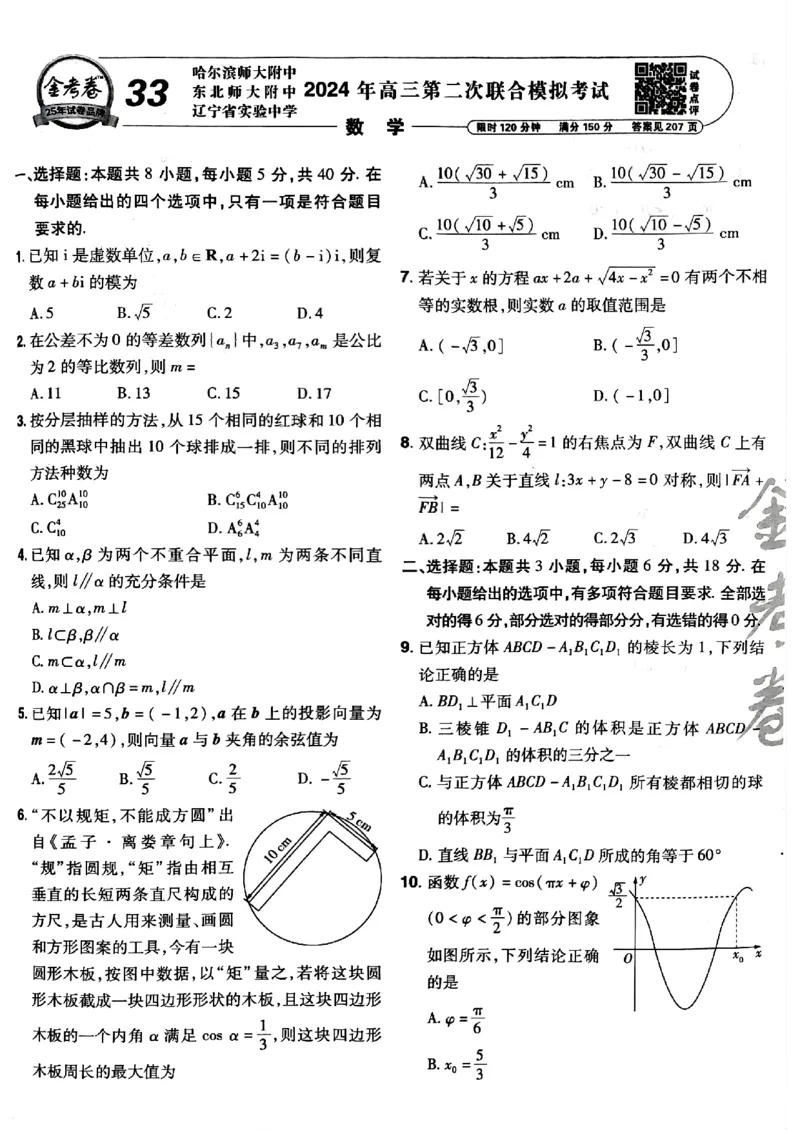 金考卷
25年试卷品牌
33
哈尔滨师大附中
东北师大附中
辽宁省实验中学
2024年高三第二次联合模拟考试
数 学
试卷点评
限时120分钟 满分150分 答案见207页
一、选择题:本题共8小题,每小题5分,共40分.在
每小题给出的四个选项中,只有一项是符合题目
要求的.
1.已知i是虚数单位,a,b∈R,a+2i=(b-i)i,则复
数a+bi的模为
A.5 B.√5 C.2 D.4
2.在公差不为0的等差数列{aₙ}中,a₃,a₇,aₘ是公比
为2的等比数列,则m=
A.11 B.13 C.15 D.17
3.按分层抽样的方法,从15个相同的红球和10个相
同的黑球中抽出10个球排成一排,则不同的排列
方法种数为
A.C₂₅¹⁰A₁₀¹⁰ B.C₁₅⁶C₁₀⁴A₁₀¹⁰
C.C₁₀⁴ D.A₆⁶A₄⁴
4.已知α,β为两个不重合平面,l,m为两条不同直
线,则l∥α的充分条件是
A.m⊥α,m⊥l
B.l⊂β,β∥α
C.m⊂α,l∥m
D.α⊥β,α∩β=m,l∥m
5.已知|a|=5,b=(-1,2),a在b上的投影向量为
m=(-2,4),则向量a与b夹角的余弦值为
A.2√5/5 B.√5/5 C.2/5 D.-√5/5
6.“不以规矩,不能成方圆”出
自《孟子·离娄章句上》.
“规”指圆规,“矩”指由相互
垂直的长短两条直尺构成的
方尺,是古人用来测量、画圆
和方形图案的工具,今有一块
圆形木板,按图中数据,以“矩”量之,若将这块圆
形木板截成一块四边形形状的木板,且这块四边形
木板的一个内角α满足cos α=1/3,则这块四边形
木板周长的最大值为
10 cm
5 cm
A.10(√30+√15)/3 cm B.10(√30-√15)/3 cm
C.10(√10+√5)/3 cm D.10(√10-√5)/3 cm
7.若关于x的方程ax+2a+√(4x-x²)=0有两个不相
等的实数根,则实数a的取值范围是
A.(-√3,0] B.(-√3/3,0]
C.[0,√3/3) D.(-1,0]
8.双曲线C:x²/12-y²/4=1的右焦点为F,双曲线C上有
两点A,B关于直线l:3x+y-8=0对称,则|FA+
FB|=
A.2√2 B.4√2 C.2√3 D.4√3
二、选择题:本题共3小题,每小题6分,共18分.在
每小题给出的选项中,有多项符合题目要求.全部选
对的得6分,部分选对的得部分分,有选错的得0分.
9.已知正方体ABCD-A₁B₁C₁D₁的棱长为1,下列结
论正确的是
A.BD₁⊥平面A₁C₁D
B.三棱锥D₁-AB₁C的体积是正方体ABCD-
A₁B₁C₁D₁的体积的三分之一
C.与正方体ABCD-A₁B₁C₁D₁所有棱都相切的球
的体积为π/3
D.直线BB₁与平面A₁C₁D所成的角等于60°
10.函数f(x)=cos(πx+φ)
(0<φ<π/2)的部分图象
如图所示,下列结论正确
的是
A.φ=π/6
B.x₀=5/3
√3/2
y
O
x₀
x
金考卷